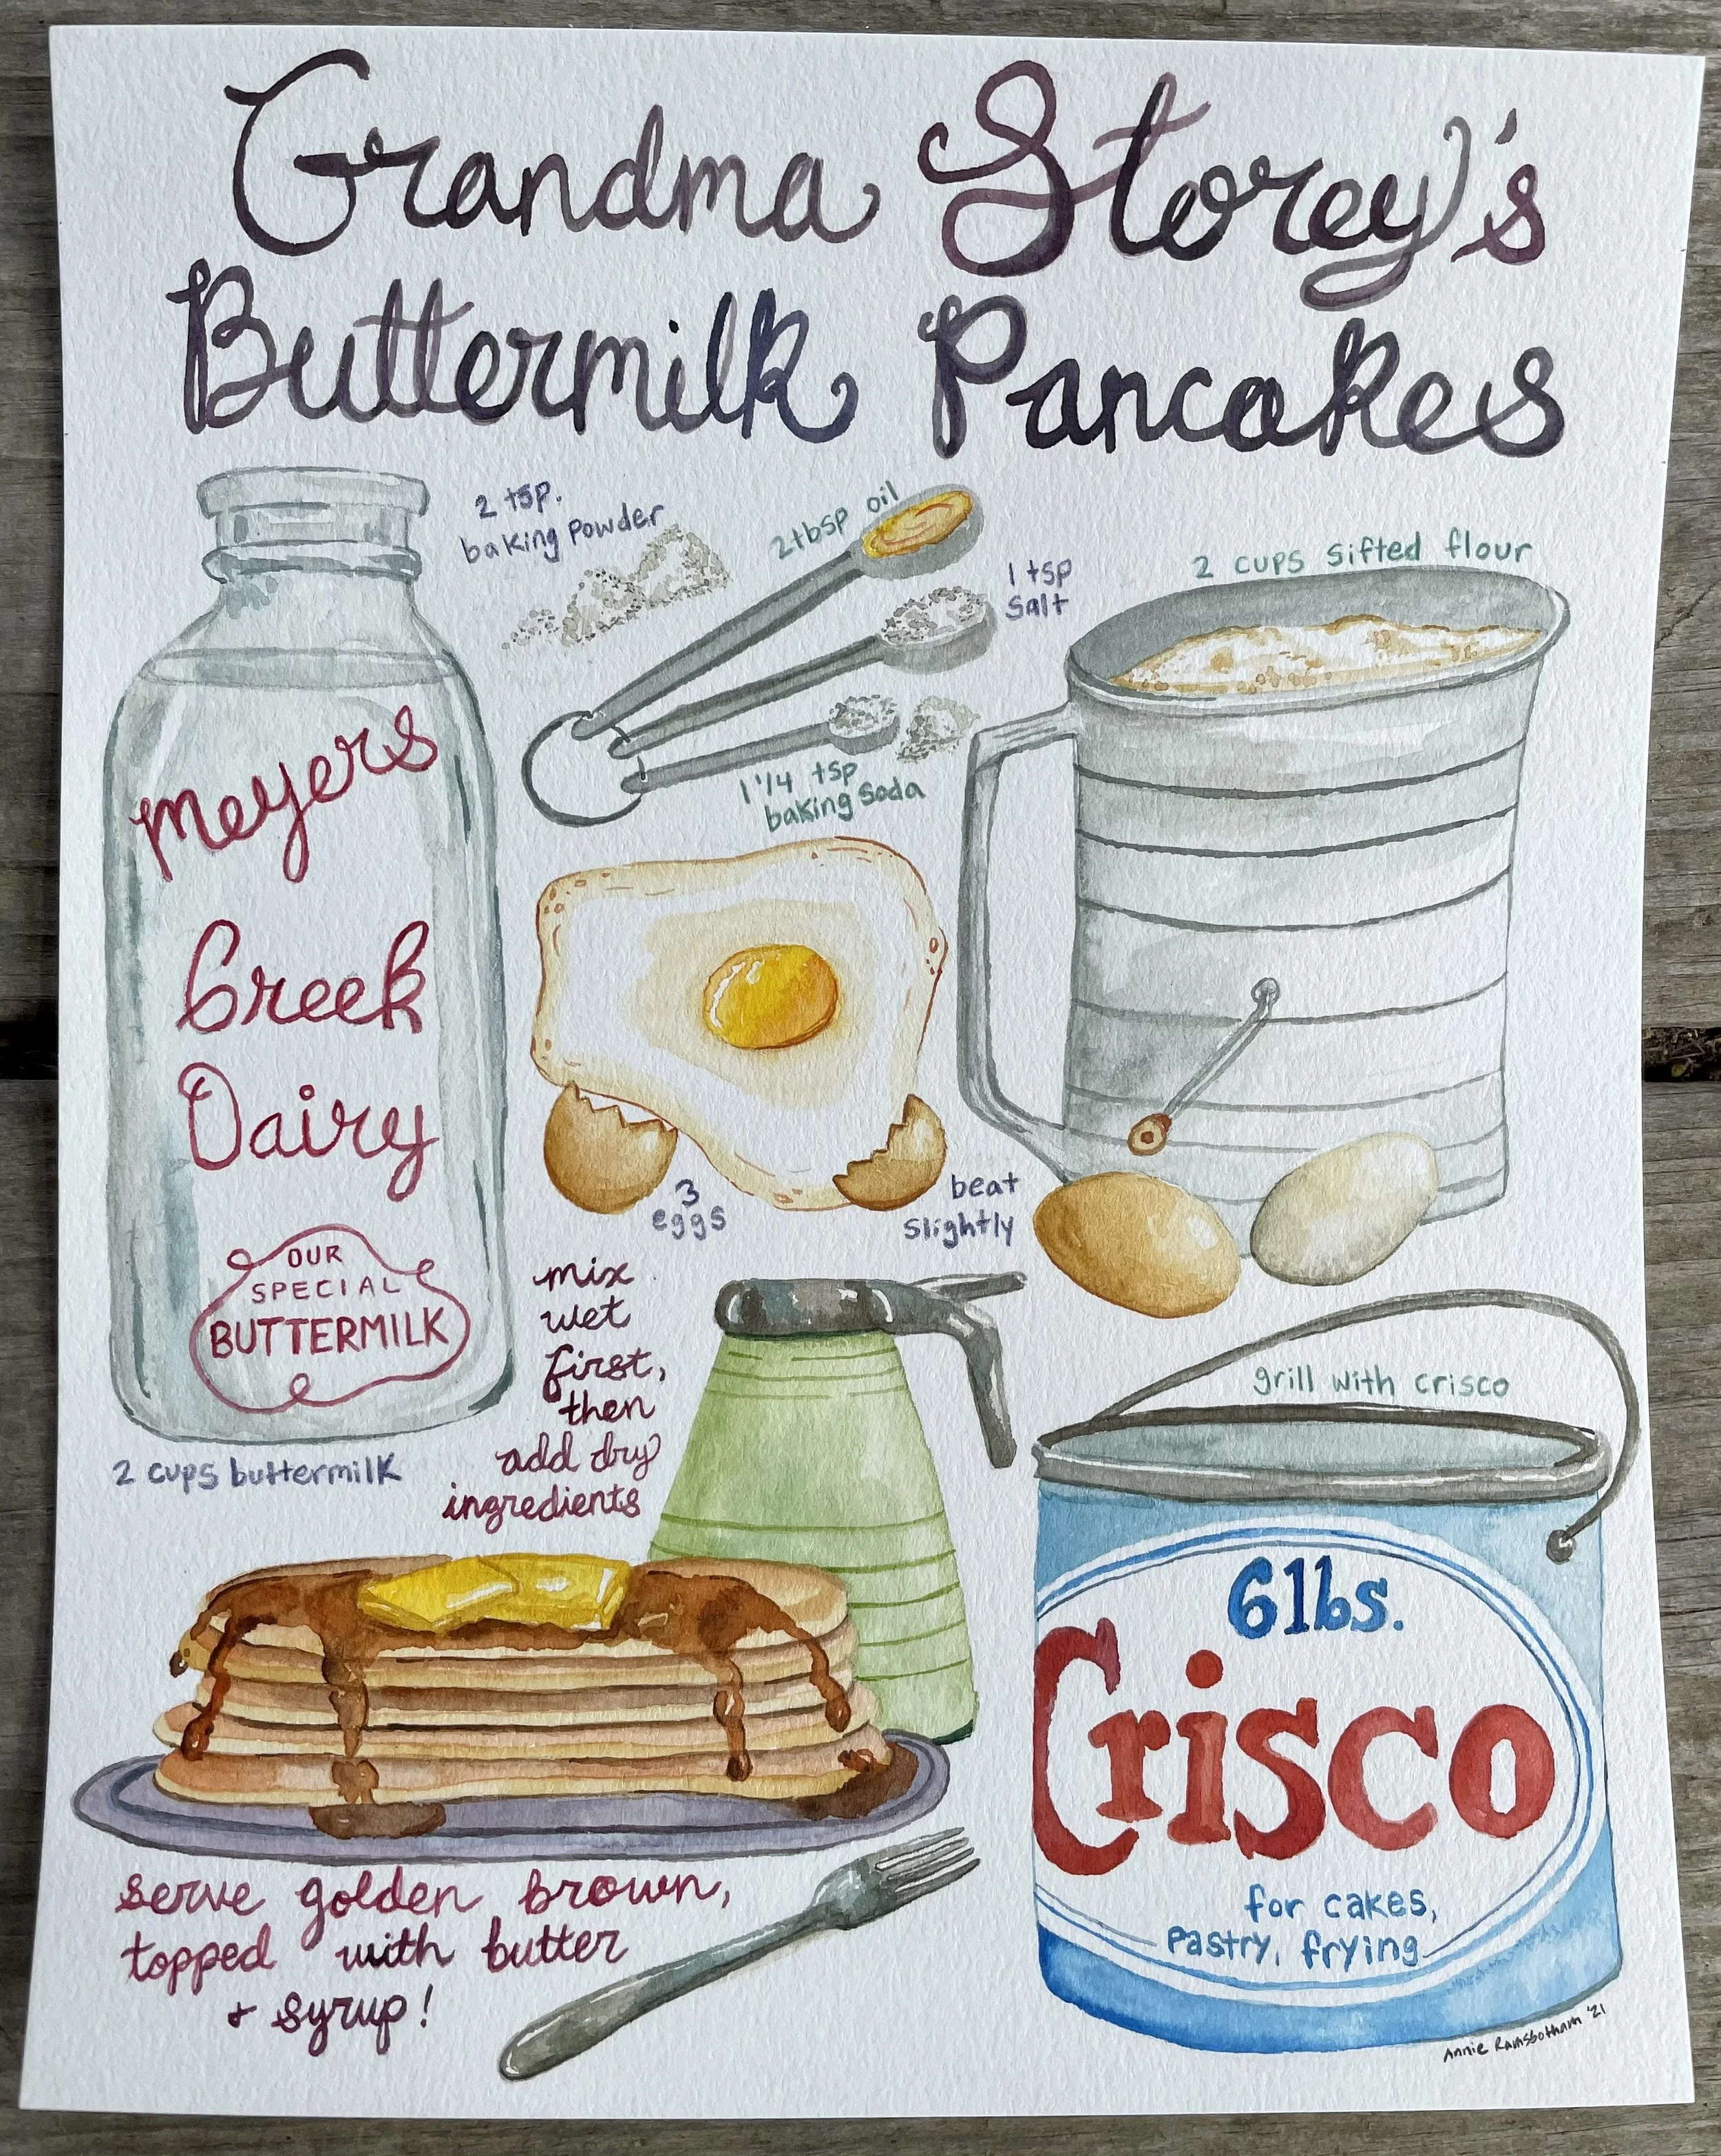 Grandma Storey's
Buttermilk Pancakes
2 tsp.
baking powder
2 tbsp oil
1 tsp
salt
2 cups sifted flour
1 1/4 tsp
baking soda
Meyers
Creek
Dairy
OUR
SPECIAL
BUTTERMILK
2 cups buttermilk
3
eggs
beat
slightly
mix
wet
first,
then
add dry
ingredients
grill with crisco
6lbs.
Crisco
for cakes,
pastry, frying
serve golden brown,
topped with butter
+ syrup!
Annie Ramsbotham '21